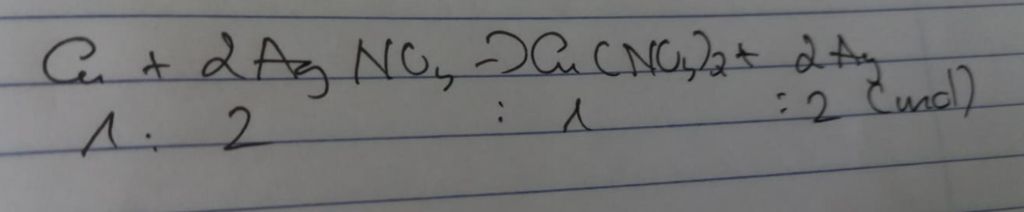 Cu + 2AgNO₃ → Cu(NO₃)₂ + 2Ag
1 : 2 : 1 : 2 (mol)